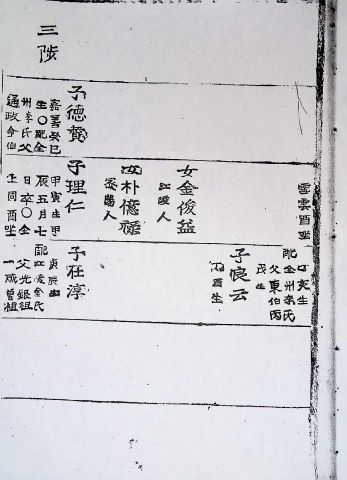 三陟
子德
嘉善癸巳
生〇配全
州李氏父
通政命伯
雲酉坐
女金俊益
江陵人
女朴億祿
密陽人
子理仁
甲寅生甲
辰五月七
日卒〇仝
上同酉坐
丁亥生
配全州李氏
父東伯丙
戌生
子良云
酉生
子在淳
庚辰生
配江陵金氏
父光銀祖
一成曾祖